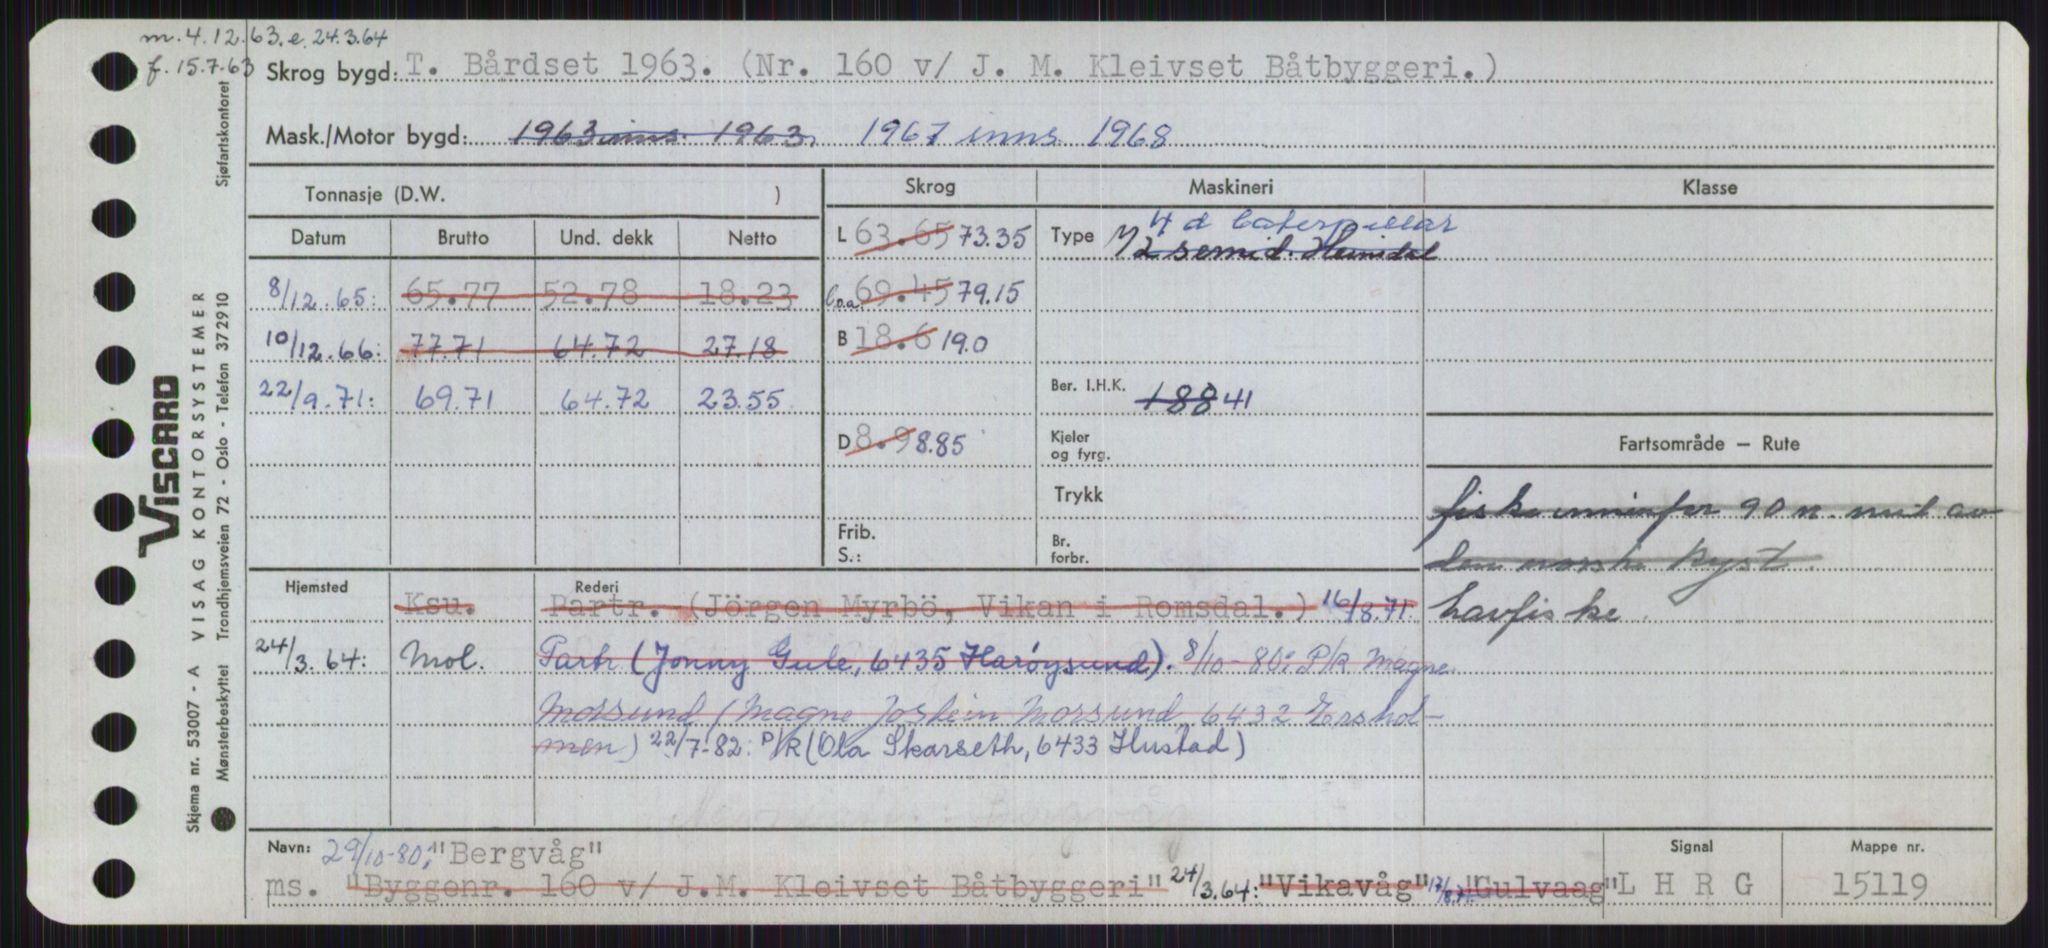 m. 4.12.63. e. 24.3.64
f. 15.7.63
Skrog bygd: T. Bårdset 1963. (Nr. 160 v/ J. M. Kleivset Båtbyggeri.)
Mask./Motor bygd: 1963 inns. 1963. 1967 inns. 1968
Tonnasje (D.W. )
Skrog
Maskineri
Klasse
Datum Brutto Und. dekk Netto
L 63.65 73.35
Type 4 d Caterpillar
1/2 semid. Heimdal
8/12.65: 65.77 52.78 18.23
l.o.a. 69.45 79.15
10/12.66: 77.71 64.72 27.18
B 18.6 19.0
22/9.71: 69.71 64.72 23.55
Ber. I.H.K. 188 41
D 8.9 8.85
Kjeler og fyrg.
Fartsområde – Rute
Trykk
fiske innenfor 90 n. mil av
Frib.
S.:
Br. forbr.
den norske kyst.
Hjemsted
Rederi
Ksu. Partr. (Jörgen Myrbö, Vikan i Romsdal.) 16/8.71.
havfiske.
24/3.64: Mol. Partr (Jonny Gule, 6435 Harøysund). 8/10-80: P/R Magne
Morsund (Magne Jostein Morsund, 6432 Ershol-
men) 22/7-82: P/R (Ola Skarseth, 6433 Hustad)
Navn: 29/10-80: "Bergvåg"
Signal
Mappe nr.
ms. "Byggenr. 160 v/ J.M. Kleivset Båtbyggeri" 24/3.64: "Vikavåg" 17/8.71: "Gulvaag" L H R G 15119
VISCARD
Skjema nr. 53007 - A VISAG KONTORSYSTEMER Sjøfartskontoret
Mønsterbeskyttet Trondhjemsveien 72 - Oslo - Telefon 372910